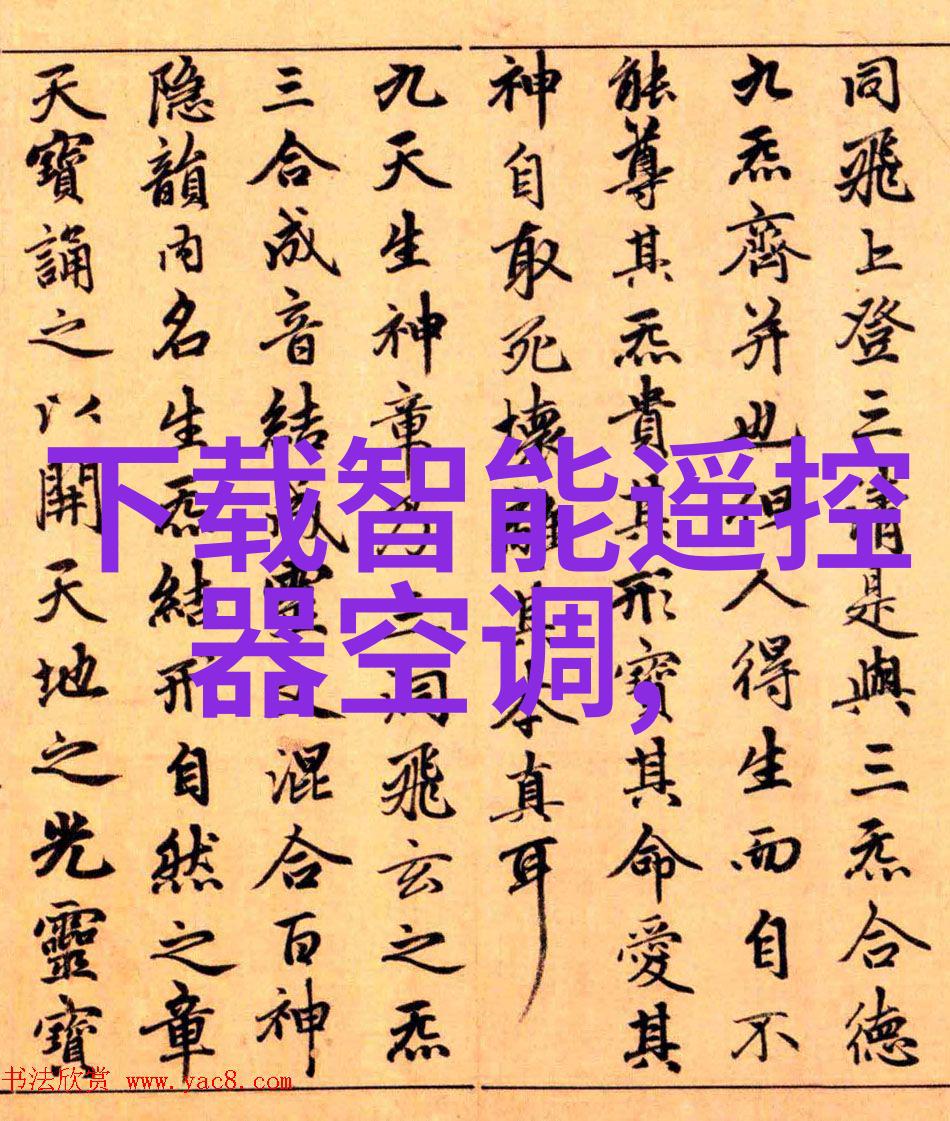 同飛上登三清是與三炁合德
九炁齊并也但人得生而自不
能尊其炁貴其形寶其命愛其
神自取死壞離其本真耳
九天生神章乃三洞飛玄之炁
三合成音結成靈文混合百神
隐韻内名生炁結形自然之章
天寶誦之以開天地之光靈寶
下载智能遥控
器空调,
书法欣赏 www.yac8.com